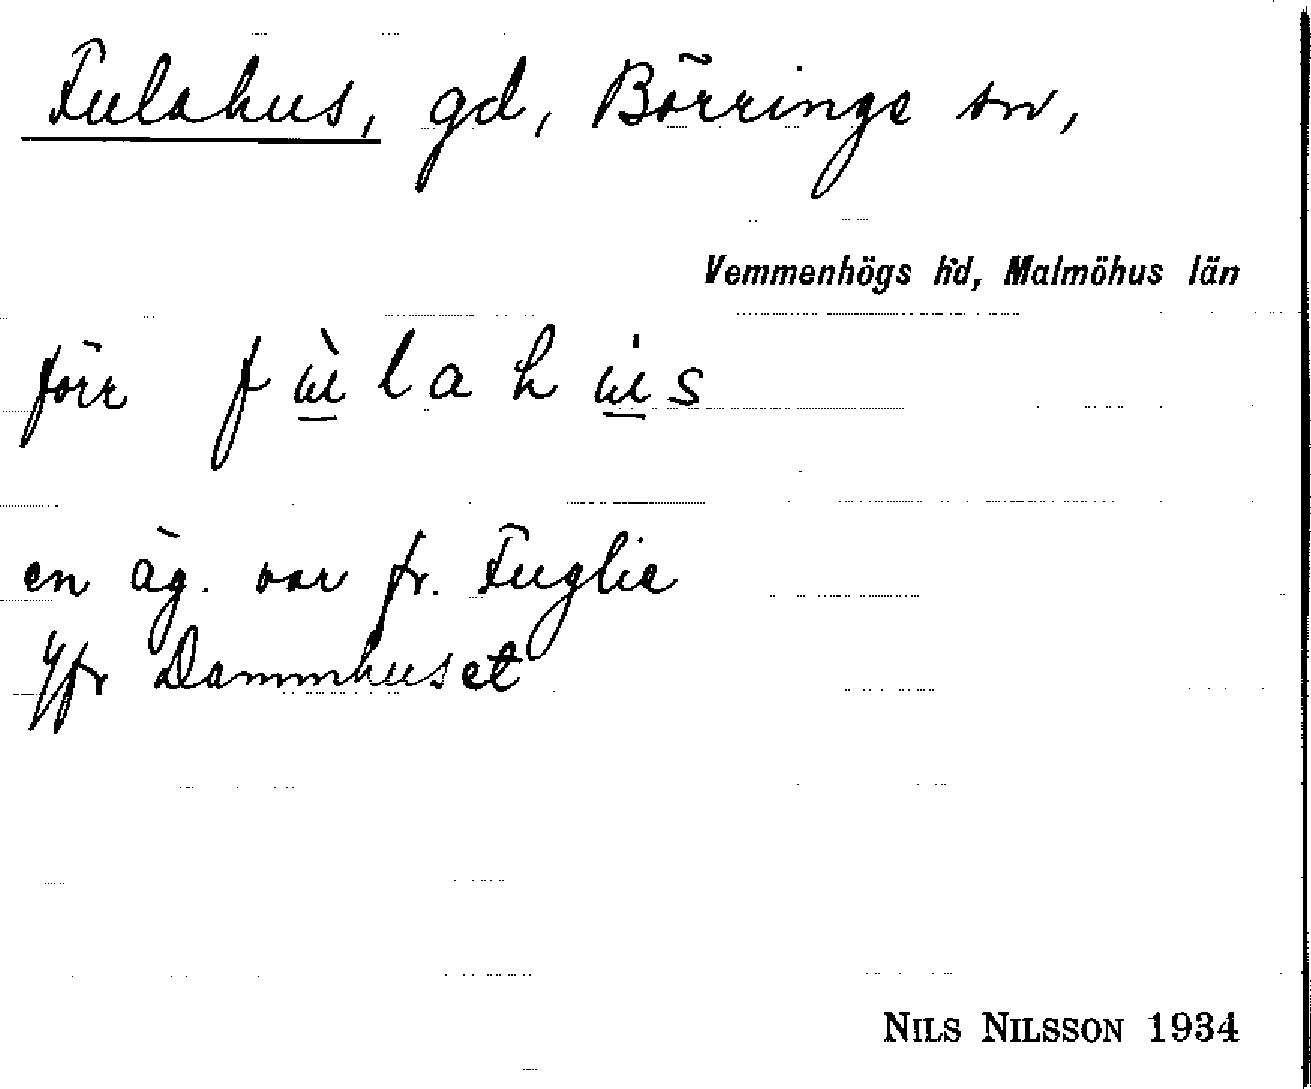 Fulahus, gd, Börringe sn,
Vemmenhögs hd, Malmöhus län
förr fɯ̀lahɯ́s
en äg. var fr. Fuglie
Jfr Dammhuset
NILS NILSSON 1934